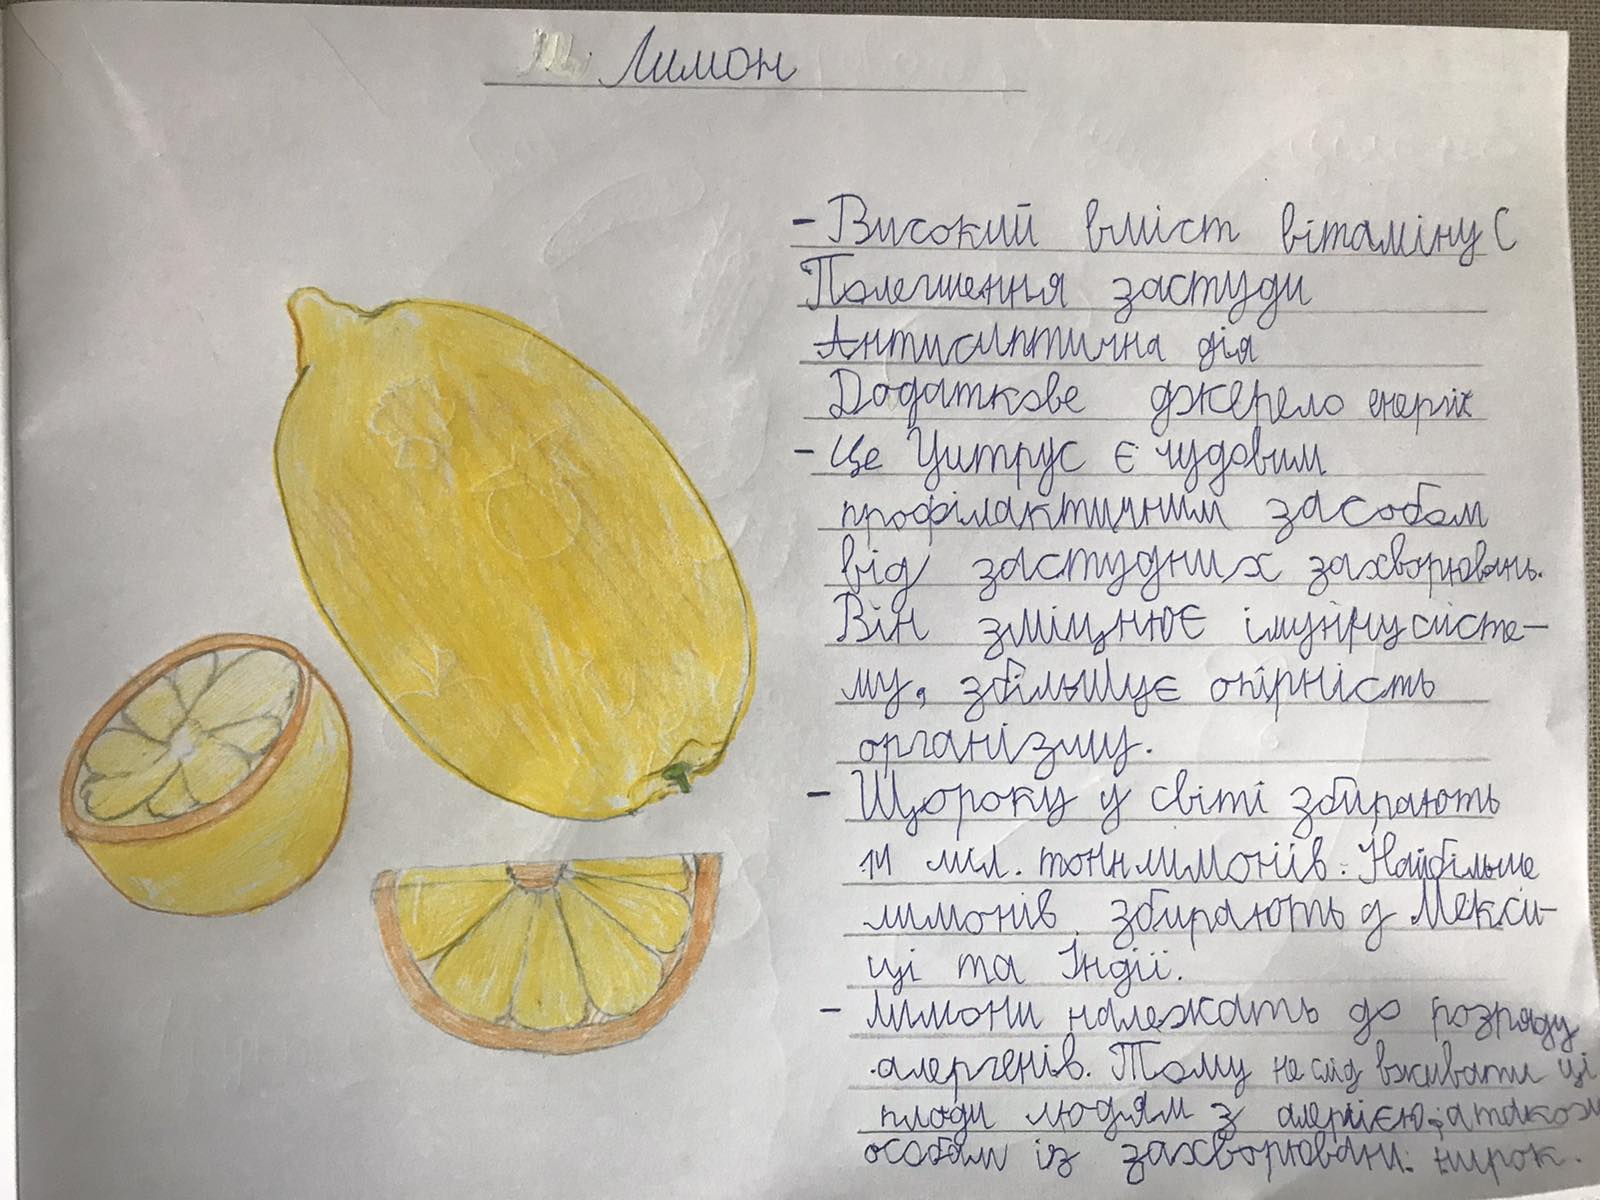 Лимон
- Високий вміст вітаміну С
Полегшення застуди
Антисептична дія
Додаткове джерело енергії
- Це Цитрус є чудовим
профілактичним засобом
від застудних захворювань.
Він зміцнює імунну систе-
му, збільшує опірність
організму.
- Щороку у світі збирають
14 міл. тонн лимонів. Найбільше
лимонів збирають у Мекси-
ці та Індії.
- Лимони належать до розряду
алергенів. Тому не слід вживати ці
плоди людям з алергією, а також
особам із захворюван. нирок.